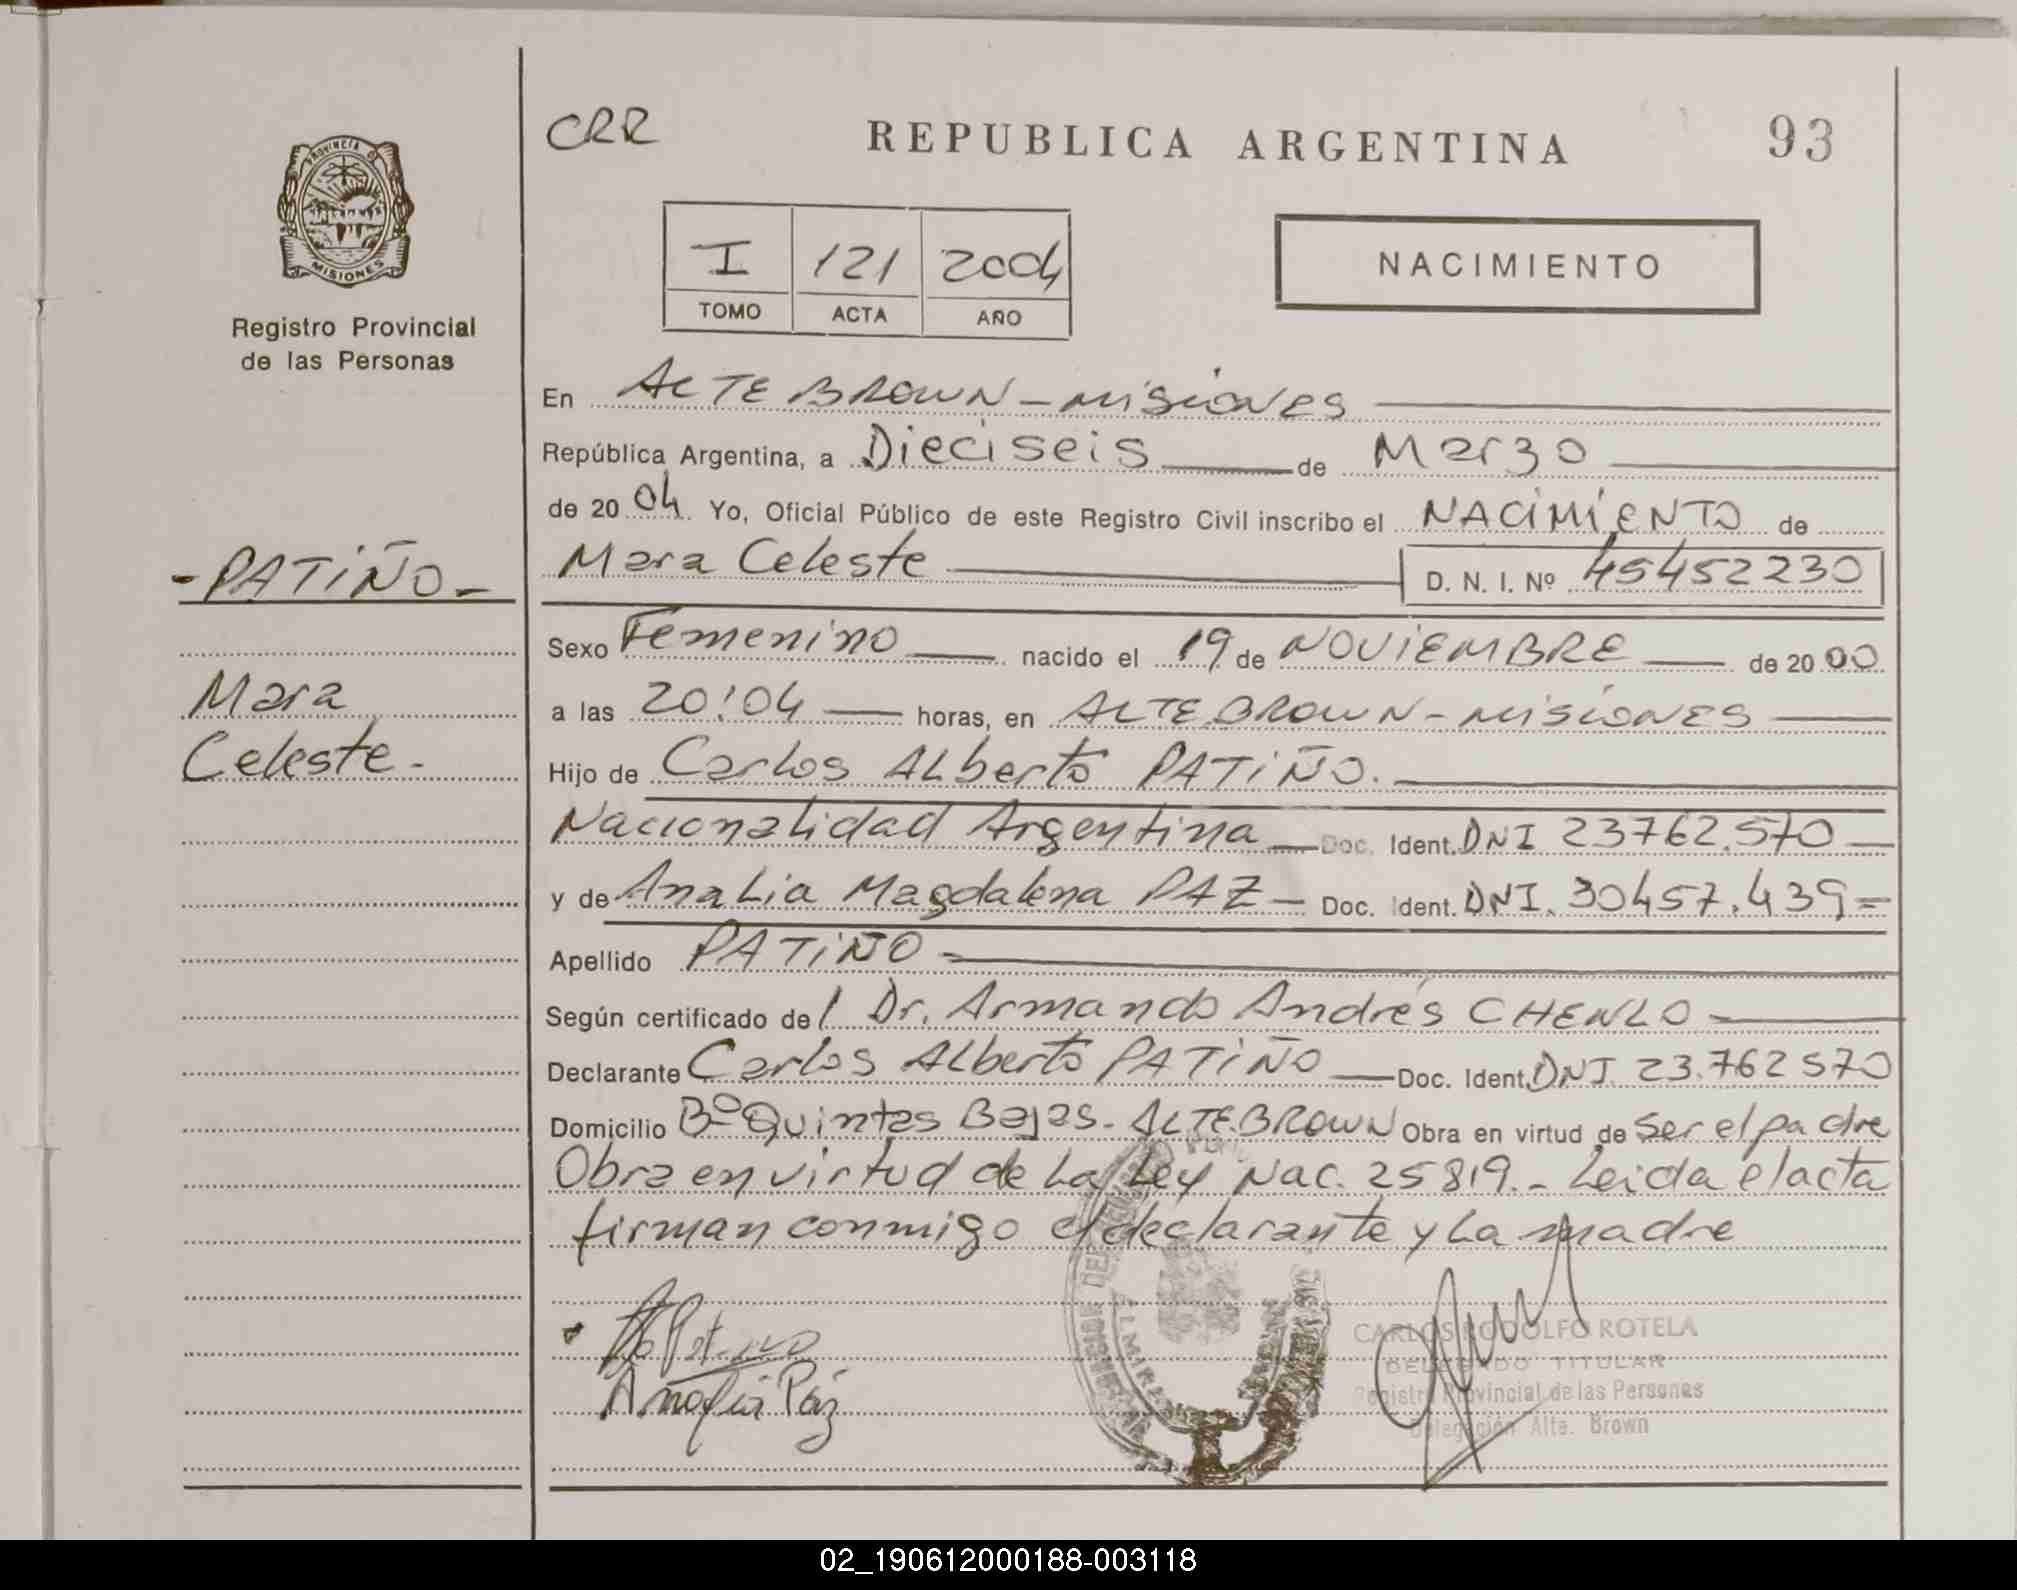 PROVINCIA DE
MISIONES
Registro Provincial
de las Personas
- PATIÑO -
Mara
Celeste -
CRR
REPUBLICA ARGENTINA
93
I 121 2004
TOMO ACTA AÑO
NACIMIENTO
En ALTE BROWN - MISIONES
República Argentina, a Dieciseis de Marzo
de 2004 Yo, Oficial Público de este Registro Civil inscribo el NACIMIENTO de
Mara Celeste D. N. I. Nº 45452230
Sexo Femenino nacido el 19 de NOVIEMBRE de 2000
a las 20:04 horas, en ALTE BROWN - MISIONES
Hijo de Carlos Alberto PATIÑO.
Nacionalidad Argentina Doc. Ident. DNI 23762.570
y de Analia Magdalena PAZ - Doc. Ident. DNI. 30457.439 =
Apellido PATIÑO
Según certificado del Dr. Armando Andrés CHENLO
Declarante Carlos Alberto PATIÑO Doc. Ident. DNI. 23.762570
Domicilio Bº Quintas Bajas - ALTE BROWN Obra en virtud de ser el padre
Obra en virtud de La Ley Nac. 25819. - Leida el acta
firman conmigo el declarante y La madre
Analia Paz
CARLOS RODOLFO ROTELA
DELEGADO TITULAR
Registro Provincial de las Personas
Delegación Alte. Brown
02_190612000188-003118